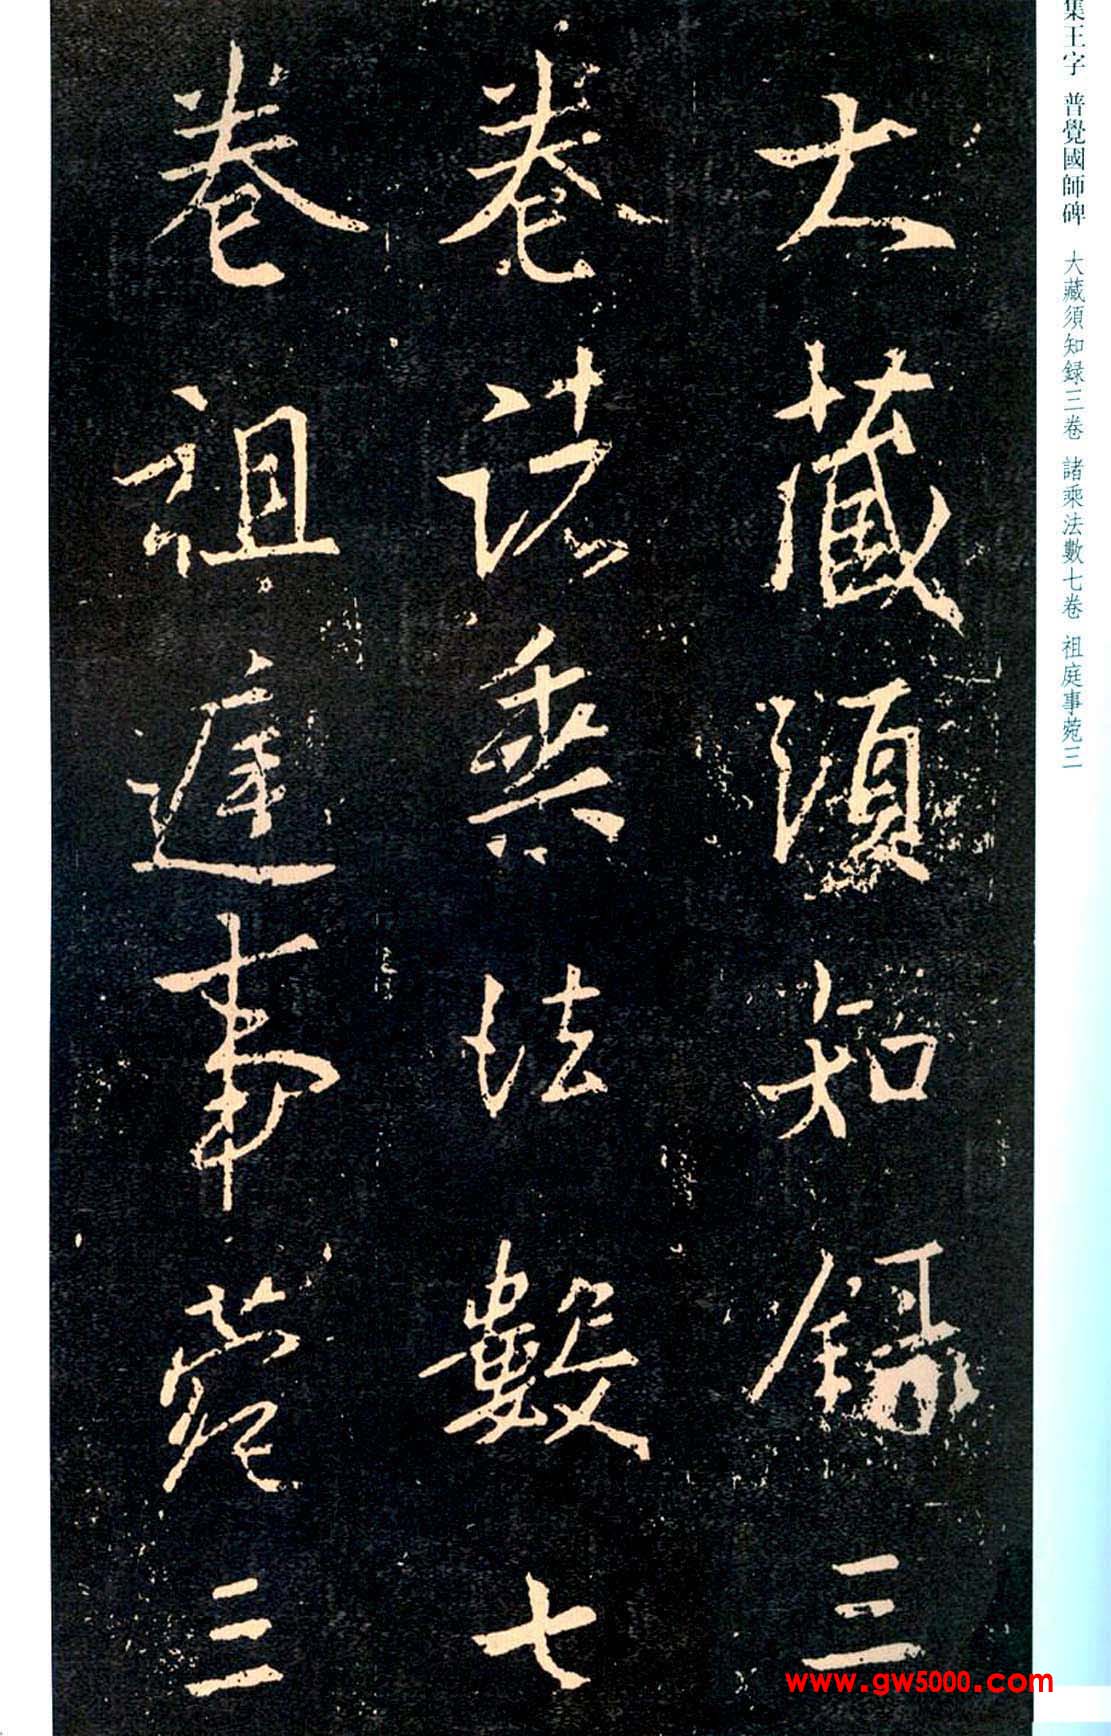 大藏須知錄三
卷諸乘法數七
卷祖庭事菀三
集王字 普覺國師碑 大藏須知録三卷 諸乘法數七卷 祖庭事菀三
www.gw5000.com